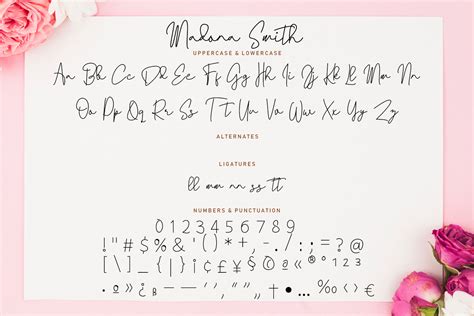 Madona Smith
UPPERCASE & LOWERCASE
Aa Bb Cc Dd Ee Ff Gg Hh Ii Jj Kk Ll Mm Nn
Oo Pp Qq Rr Ss Tt Uu Vv Ww Xx Yy Zz
ALTERNATES
LIGATURES
ll mm nn ss tt
NUMBERS & PUNCTUATION
0 1 2 3 4 5 6 7 8 9
! " # $ % & ' ( ) * + , - . / : ; < = > ? @
[ \ ] _ { | } ¡ ¢ £ ¥ § © ® ° ² ³